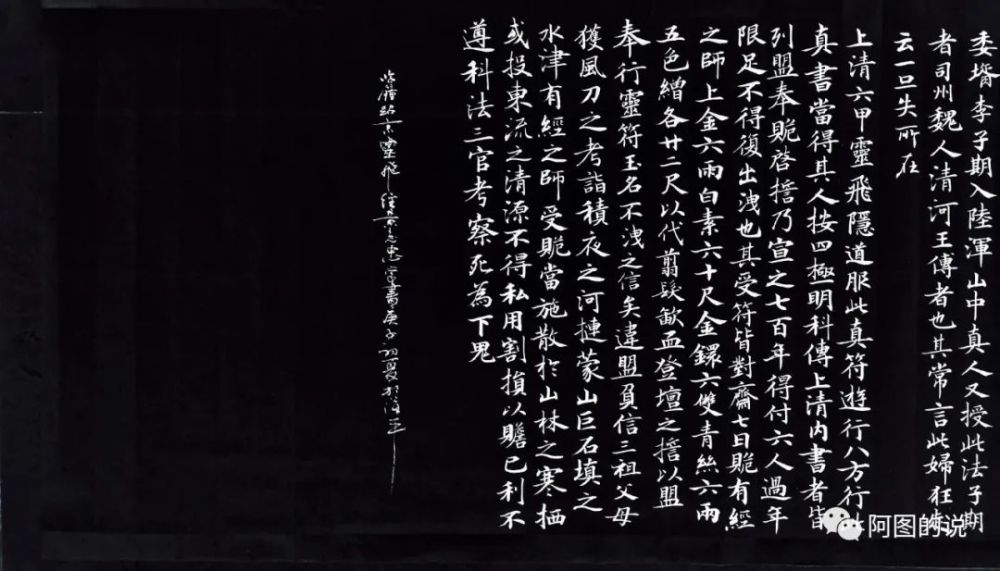 委壻李子期入陸渾山中真人又授此法子期
者司州魏人清河王傳者也其常言此婦狂
云一旦失所在
上清六甲靈飛隱道服此真符遊行八方行
真書當得其人按四極明科傳上清內書者皆
列盟奉貺啓誓乃宣之七百年得付六人過年
限足不得復出洩也其受符皆對齋七日貺有經
之師上金六兩白素六十尺金鐶六雙青絲六兩
五色繒各廿二尺以代翦髮歃血登壇之誓以盟
奉行靈符玉名不洩之信矣違盟負信三祖父母
獲風刀之考詣積夜之河摙蒙山巨石填之
水津有經之師受貺當施散於山林之寒栖
或投東流之清源不得私用割損以贍己利不
遵科法三官考察死為下鬼
靈飛經
阿图的说